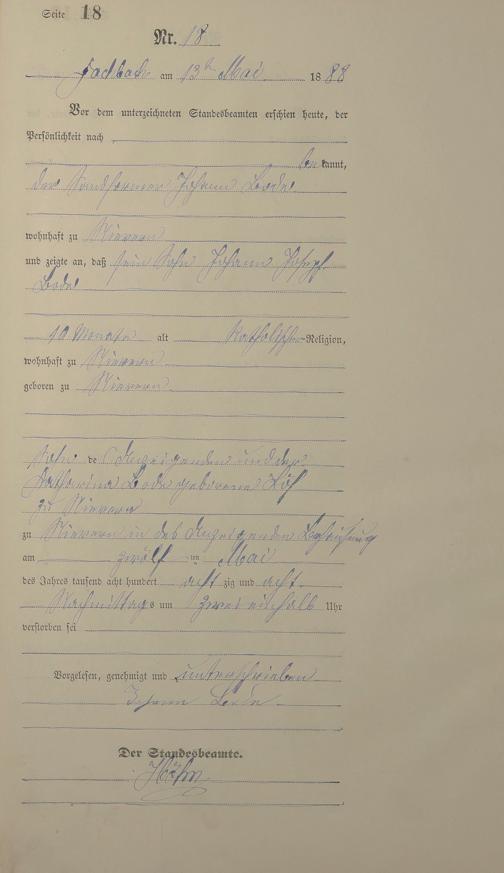 Seite 18
Nr. 18
Fachbach am 13ten Mai 1888
Vor dem unterzeichneten Standesbeamten erschien heute, der
Persönlichkeit nach
bekannt,
der Sandformer Johann Bode
wohnhaft zu Nievern
und zeigte an, daß sein Sohn Johann Joseph
Bode
10 Monate alt katholischer Religion,
wohnhaft zu Nievern
geboren zu Nievern
Sohn des Anzeigenden und der
Katharina Bode geborene
zu Nievern
zu Nievern in des Anzeigenden Behausung
am zwölften Mai
des Jahres tausend acht hundert achtzig und acht
Nachmittags um zwei einhalb Uhr
verstorben sei
Vorgelesen, genehmigt und unterschrieben
Johann Bode
Der Standesbeamte.